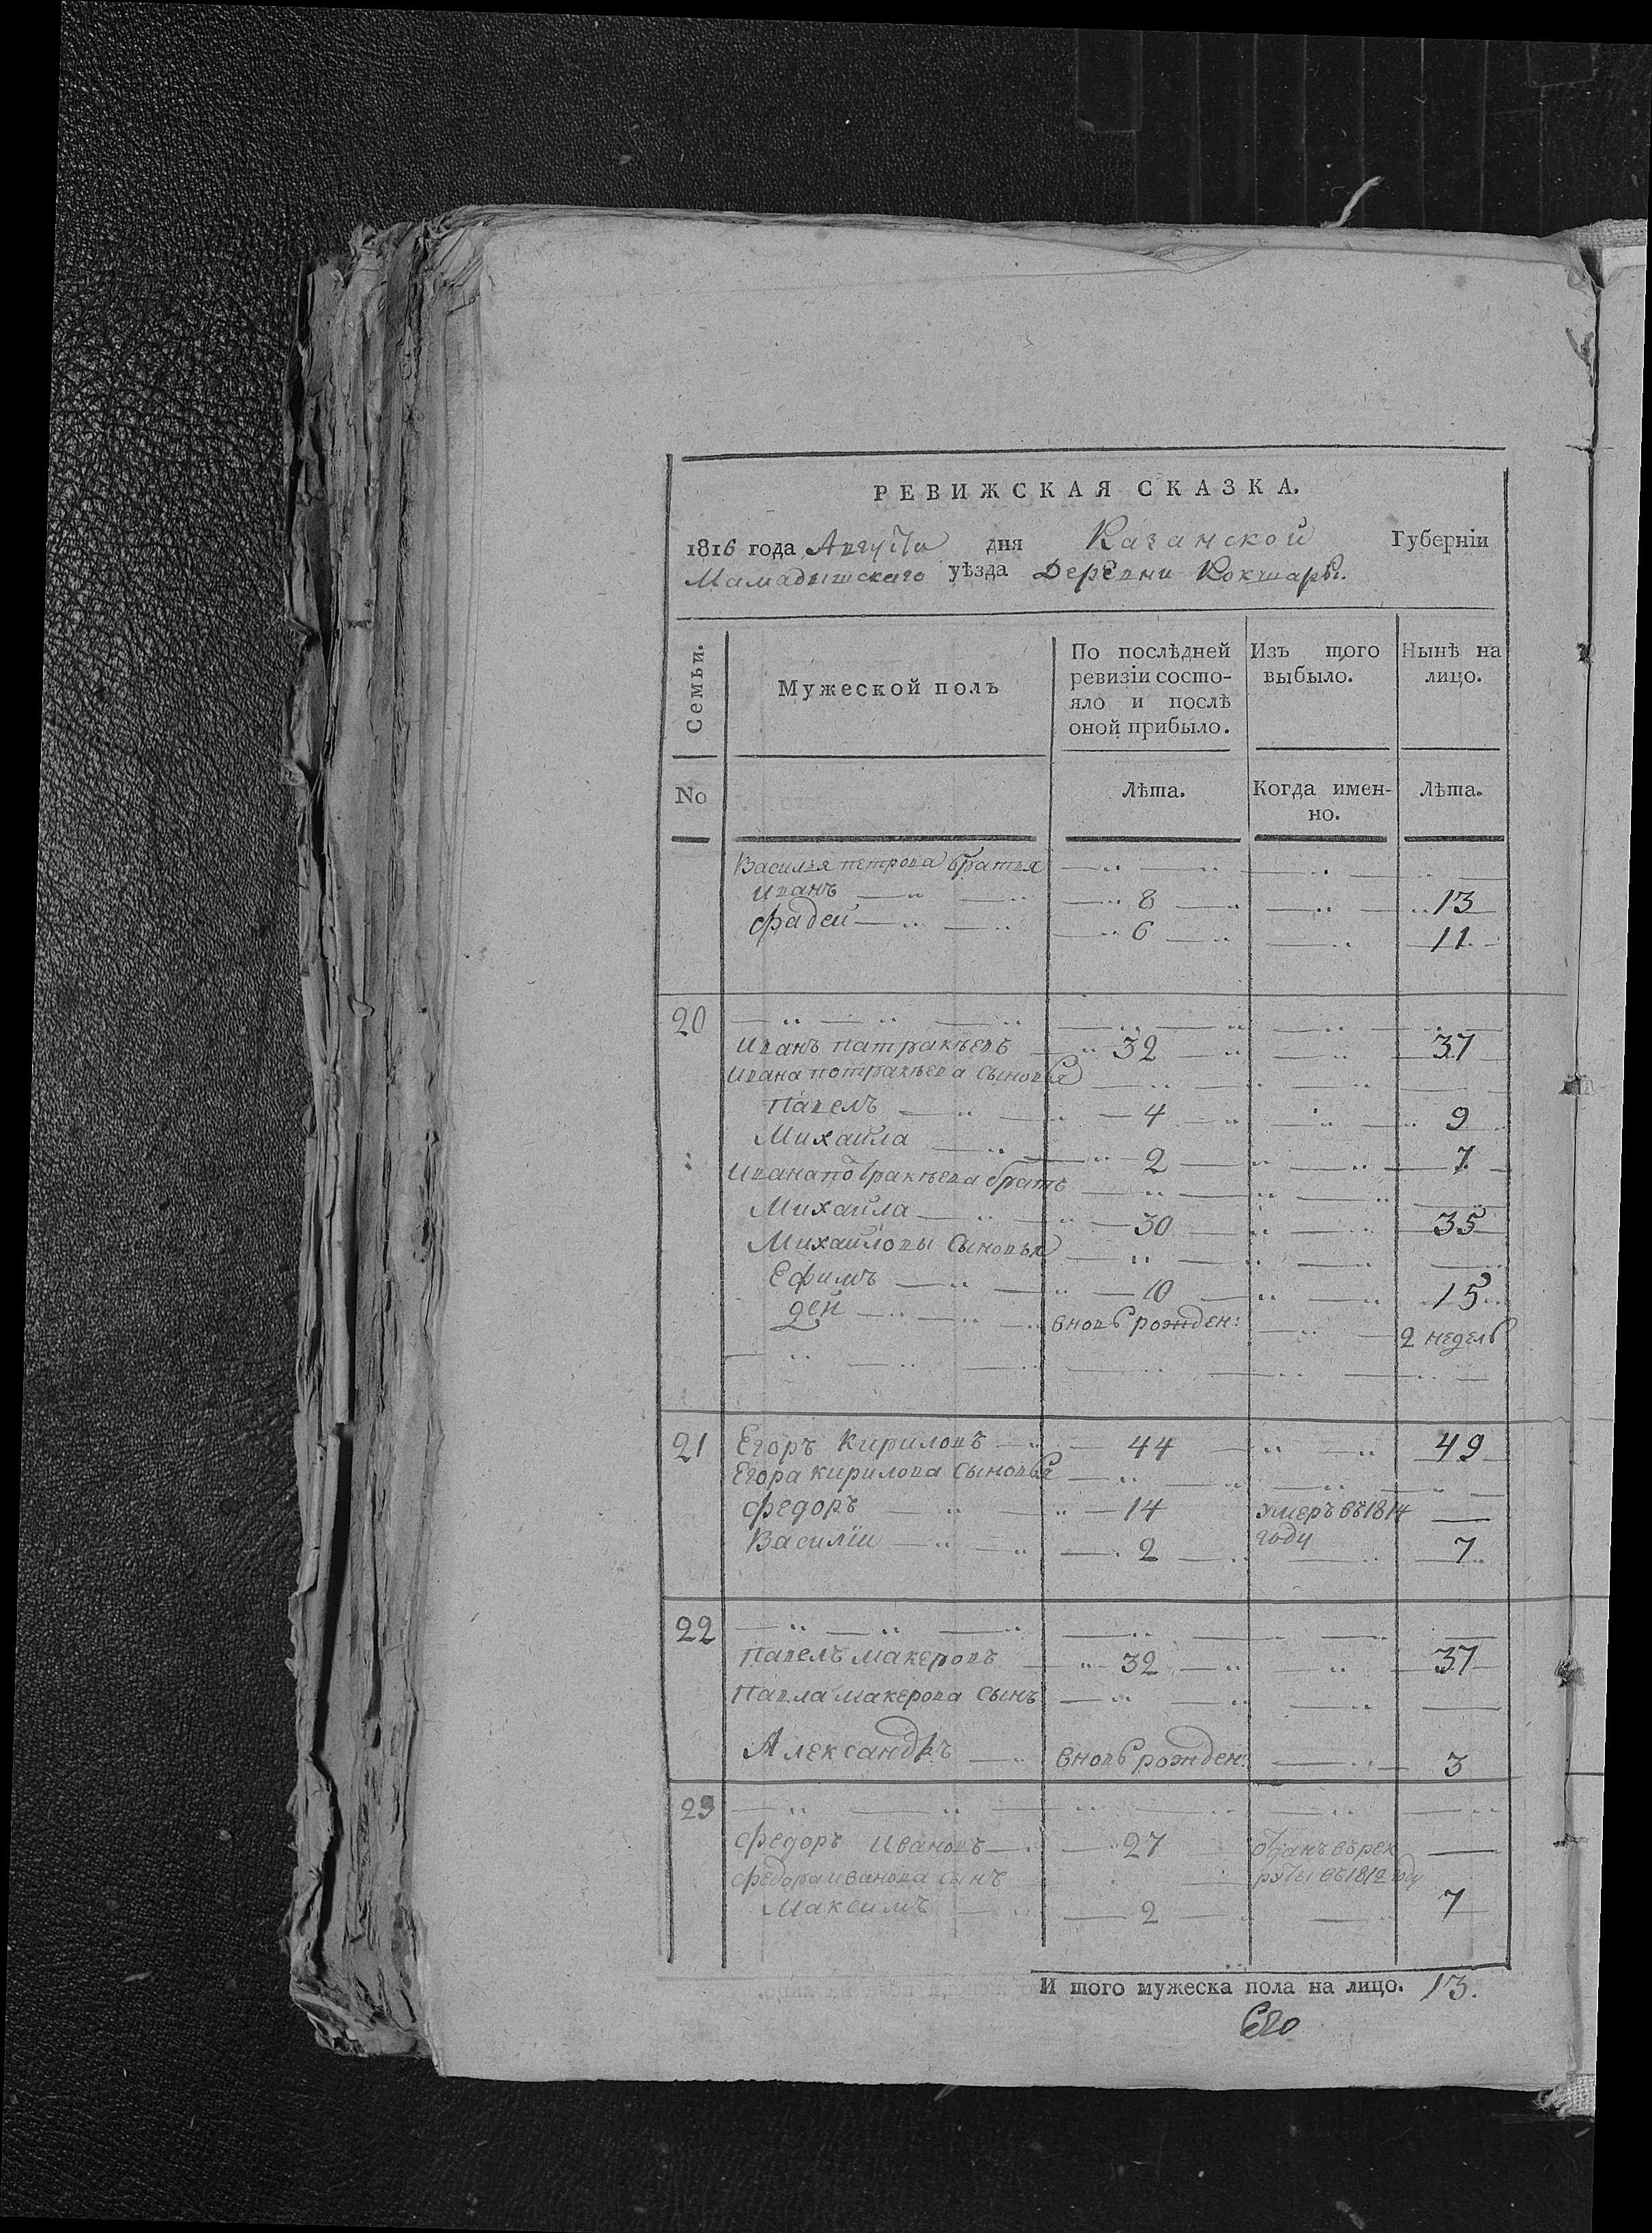 РЕВИЖСКАЯ СКАЗКА.
1816 года Августа дня Казанской Губернiи
Мамадышского уѣзда Деревни Кокшары.
Семьи.
Мужеской полъ
По послѣдней
ревизiи состо-
яло и послѣ
оной прибыло.
Изъ того
выбыло.
Нынѣ на
лицо.
No
Лѣта.
Когда имен-
но.
Лѣта.
Василья петрова братья
Иванъ 8 13
Фадей 6 11
20
Иванъ патракѣевъ 32 37
Ивана потракѣева сыновья
Павелъ 4 9
Михайла 2 7
Ивана потракѣева братъ
Михайла 30 35
Михайловы сыновья
Ефимъ 10 15
вновь рожден: 2 недель
21 Егоръ Кириловъ 44 49
Егора Кирилова сыновья
Федоръ 14 умеръ въ 1814
году
Василiй 2 7
22
Павелъ Макеровъ 32 37
Павла Макерова сынъ
Александръ вновь рожден: 3
23
Федоръ Ивановъ 27 отданъ въ рек
руты въ 1812 году
Федора Иванова сынъ
Максимъ 2 7
И того мужеска пола на лицо. 13.